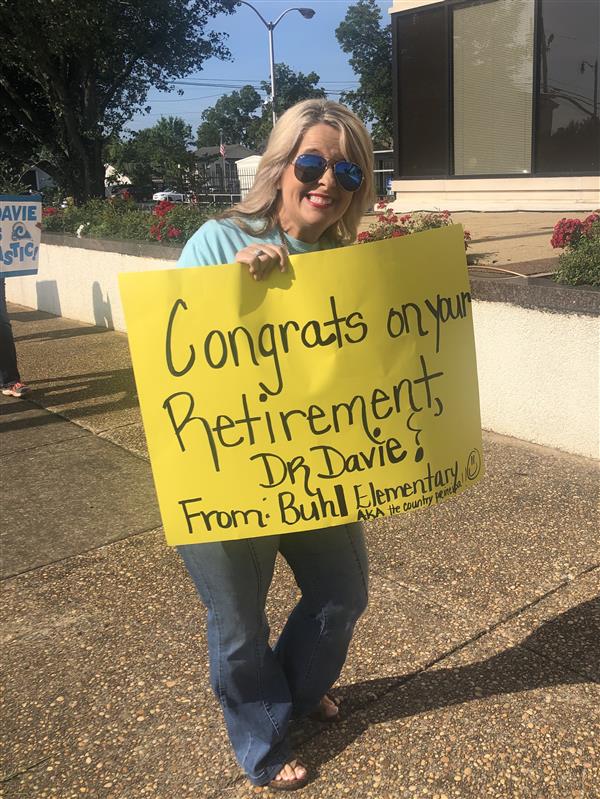 Congrats on your
Retirement,
DR Davie!
From: Buhl Elementary
AKA the country principal!!
DAVIE